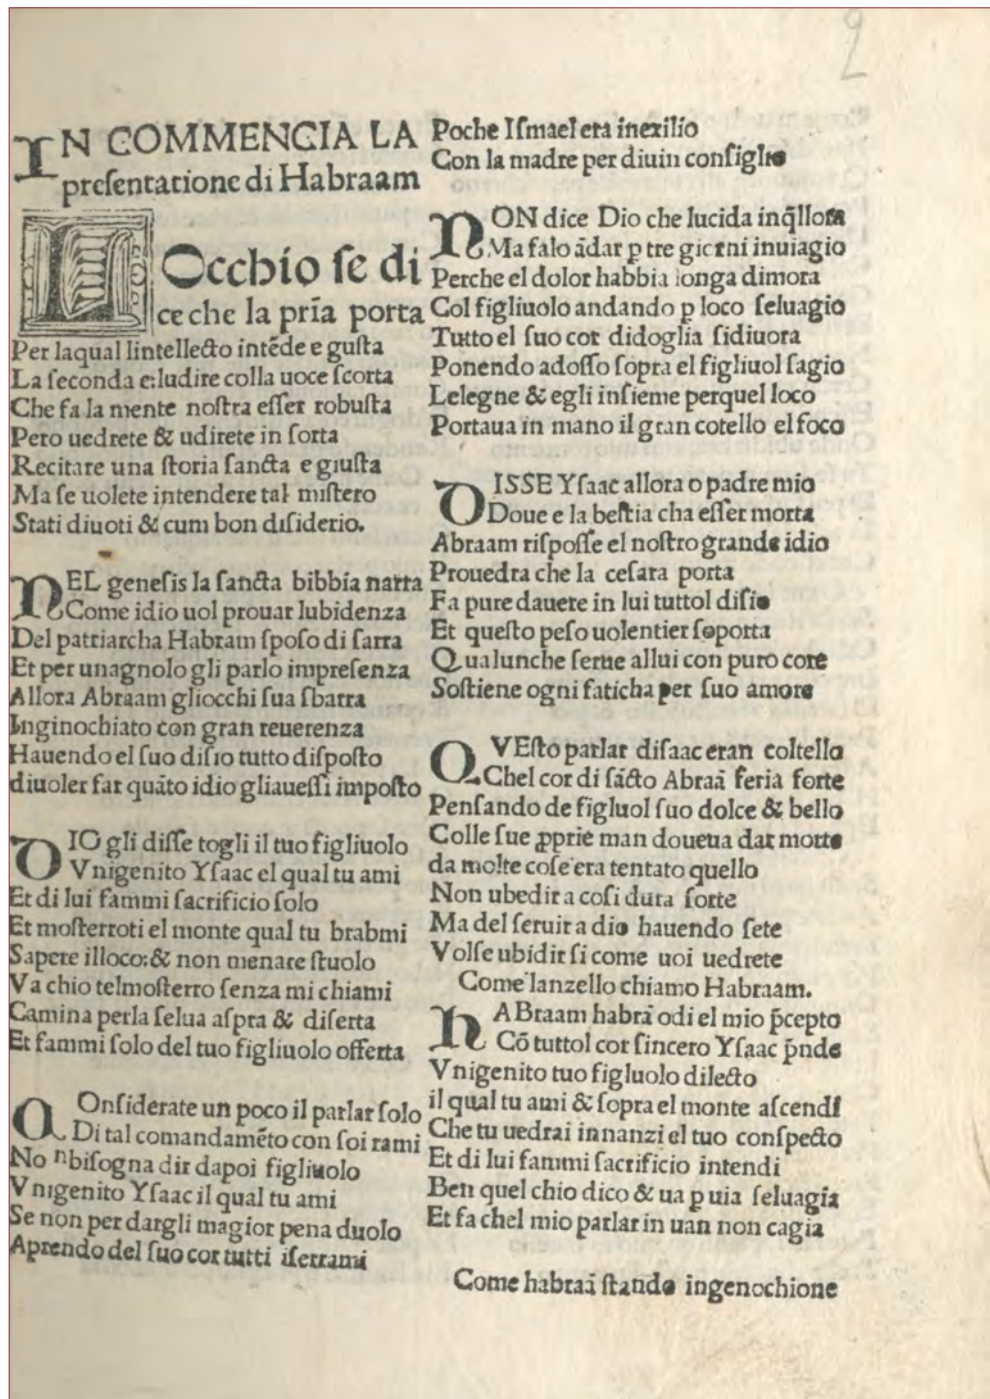 2
IN COMMENCIA LA
preſentatione di Habraam
LOcchio ſe di
ce che la prīa porta
Per laqual lintellecto intēde e guſta
La ſeconda e:ludire colla uoce ſcorta
Che fa la mente noſtra eſſer robuſta
Pero uedrete & udirete in ſorta
Recitare una ſtoria ſancta e giuſta
Ma ſe uolete intendere tal miſtero
Stati diuoti & cum bon diſiderio.
NEL geneſis la ſancta bibbia narra
Come idio uol prouar lubidenza
Del patriarcha Habram ſpoſo di ſarra
Et per unagnolo gli parlo impreſenza
Allora Abraam gliocchi ſua ſbarra
Inginochiato con gran reuerenza
Hauendo el ſuo diſio tutto diſpoſto
diuoler far quāto idio gliaueſſi impoſto
DIO gli diſſe togli il tuo figliuolo
Vnigenito Yſaac el qual tu ami
Et di lui fammi ſacrificio ſolo
Et moſterroti el monte qual tu brabmi
Sapere illoco:& non menare ſtuolo
Va chio telmoſterro ſenza mi chiami
Camina perla ſelua aſpra & diſerta
Et fammi ſolo del tuo figliuolo offerta
COnſiderate un poco il parlar ſolo
Di tal comandamēto con ſoi rami
No nbiſogna dir dapoi figliuolo
Vnigenito Yſaac il qual tu ami
Se non per dargli magior pena duolo
Aprendo del ſuo cor tutti iſerrami
Poche Iſmael era inexilio
Con la madre per diuin conſiglio
NON dice Dio che lucida inq̄llora
Ma falo ādar ꝑ tre giorni inuiagio
Perche el dolor habbia longa dimora
Col figliuolo andando ꝑ loco ſeluagio
Tutto el ſuo cor didoglia ſidiuora
Ponendo adoſſo ſopra el figliuol ſagio
Lelegne & egli inſieme perquel loco
Portaua in mano il gran cotello el foco
DISSE Yſaac allora o padre mio
Doue e la beſtia cha eſſer morta
Abraam riſpoſſe el noſtro grande idio
Prouedra che la ceſara porta
Fa pure dauere in lui tuttol diſio
Et queſto peſo uolentier ſoporta
Qualunche ſerue allui con puro core
Soſtiene ogni faticha per ſuo amore
QVEſto parlar diſaac eran coltello
Chel cor di ſācto Abraā feria forte
Penſando de figluol ſuo dolce & bello
Colle ſue ꝓprie man doueua dar morte
da molte coſe era tentato quello
Non ubedir a coſi dura ſorte
Ma del ſeruir a dio hauendo ſete
Volſe ubidir ſi come uoi uedrete
Come lanzello chiamo Habraam.
HABraam habrā odi el mio p̄cepto
Cō tuttol cor ſincero Yſaac p̄nde
Vnigenito tuo figluolo dilecto
il qual tu ami & ſopra el monte aſcendi
Che tu uedrai innanzi el tuo conſpecto
Et di lui fammi ſacrificio intendi
Ben quel chio dico & ua ꝑ uia ſeluagia
Et fa chel mio parlar in uan non cagia
Come habraā ſtando ingenochione